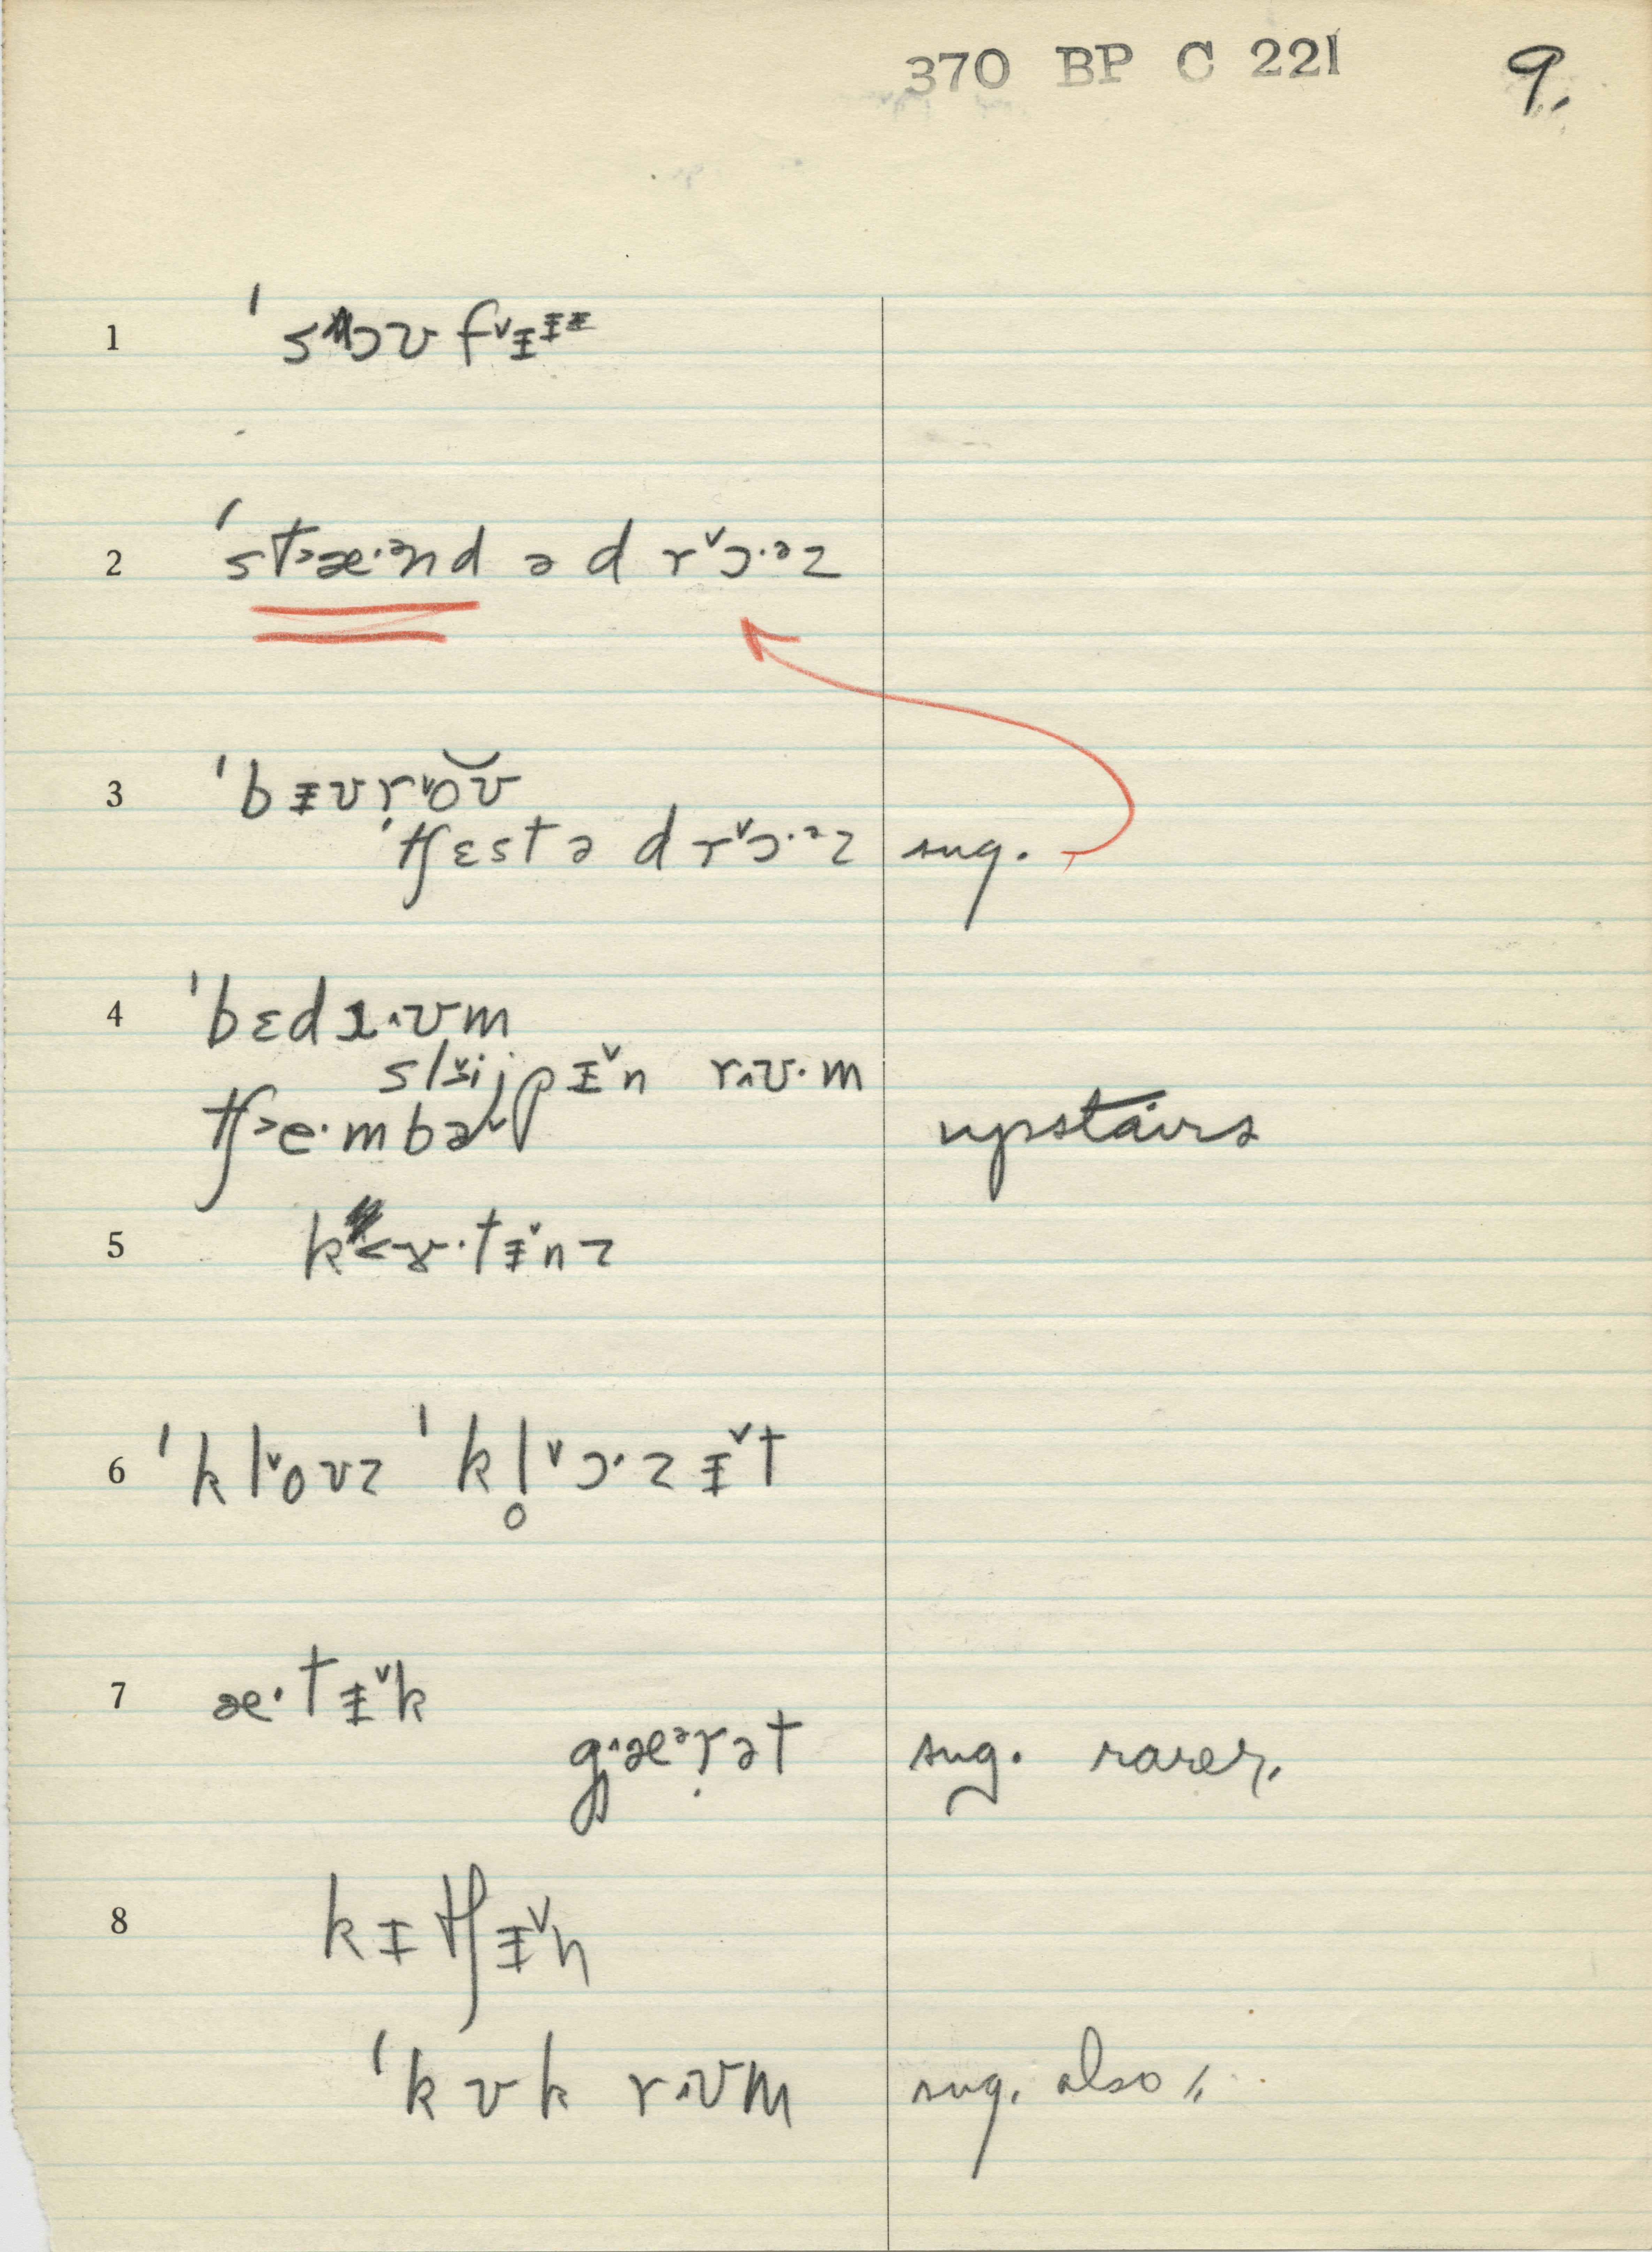 370 BP C 221 9.
1 ˈsoʊfᵛɪᶦᶦ
2 ˈst˃æ·ᵊnd ə d rᵛɔ·ᵊz
3 ˈbɪʊṛᵛoʊ̆
ˈtʃɛst ə d rᵛɔ·ᵊz sug.
4 ˈbɛdɹ˄ʊm
slᵛijpɪᵛn r˄ʊ·m
tʃ˃e·mbəʳ upstairs
5 k˂ɤ·tɪᵛnz
6 ˈklᵛoʊz ˈkl̥ᵛɔ·zɪᵛt
7 æ·tɪᵛk
g˄æᵊṛət sug. rarer.
8 kɪtʃɪᵛn
ˈkʊk r˄ʊm sug. also